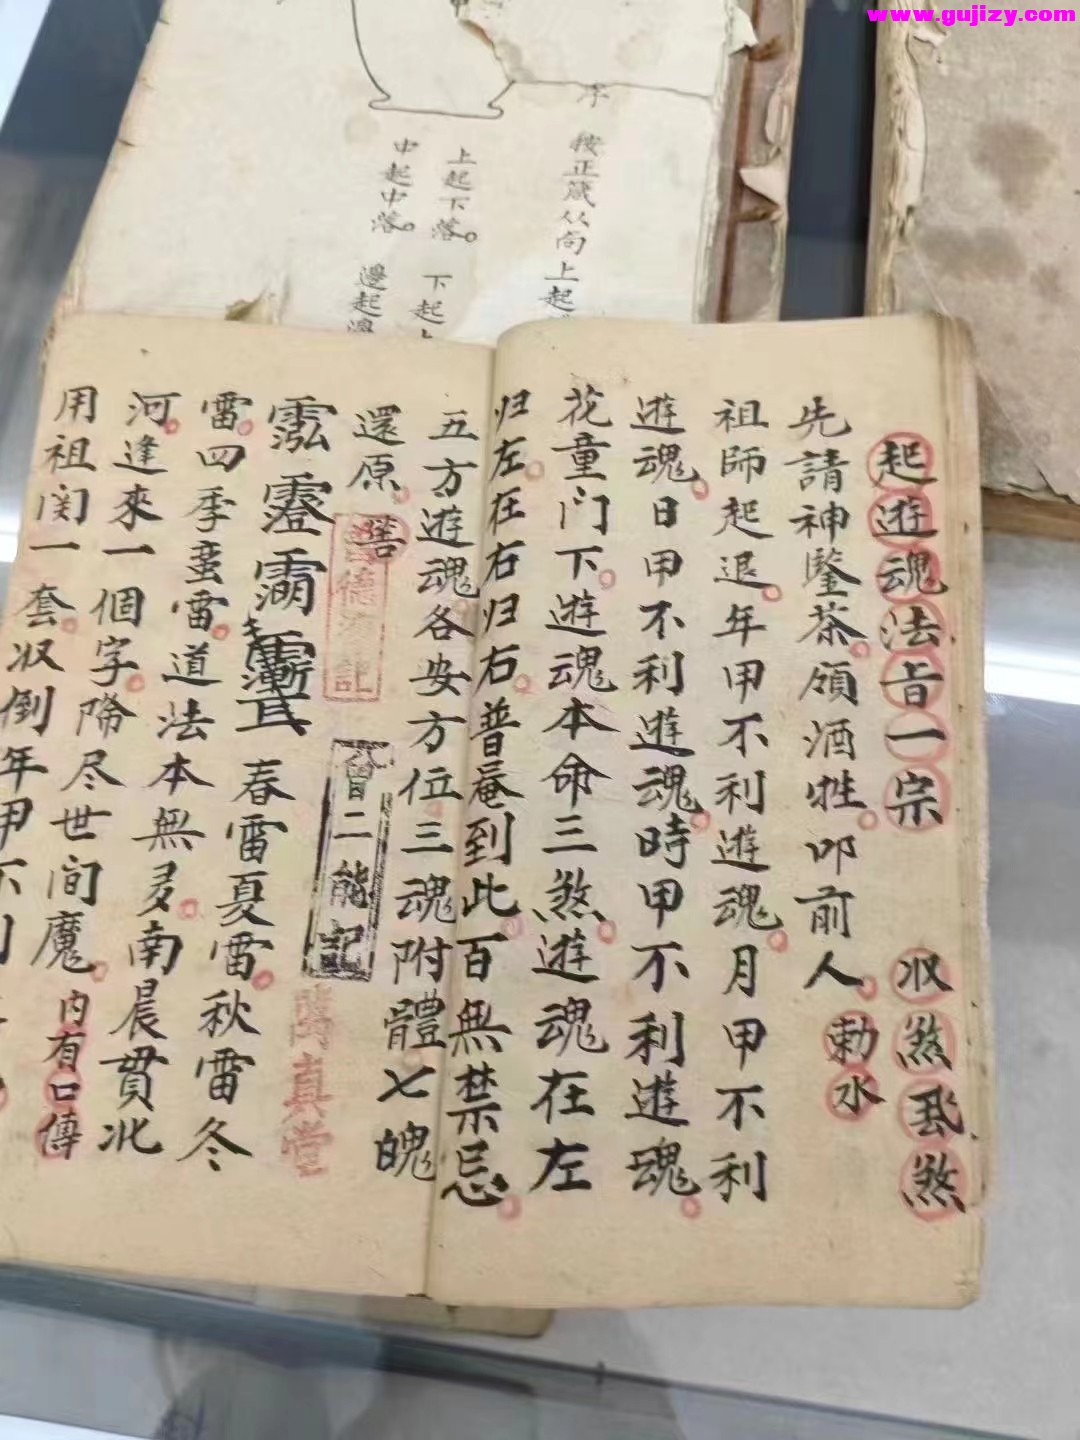 www.gujizy.com
序
按正箴从向上起
上起下落。下起上
中起中落。邊起邊
起遊魂法旨一宗 收煞孤煞
先請神鑒茶。領酒牲。叩前人。勅水
祖師起退。年甲不利遊魂。月甲不利
遊魂。日甲不利遊魂。時甲不利遊魂。
花童门下。遊魂本命三煞。遊魂在左
归左。在右归右。普庵到此。百無禁忌。
五方遊魂。各安方位。三魂附體。七魄
還原。
德 記
曾二能記
真堂
春雷夏雷。秋雷冬
雷。四季蛮雷。道法本無多。南晨貫北
河。逢來一個字。降尽世间魔。内有口傳
用祖
一套。収倒
年甲不利